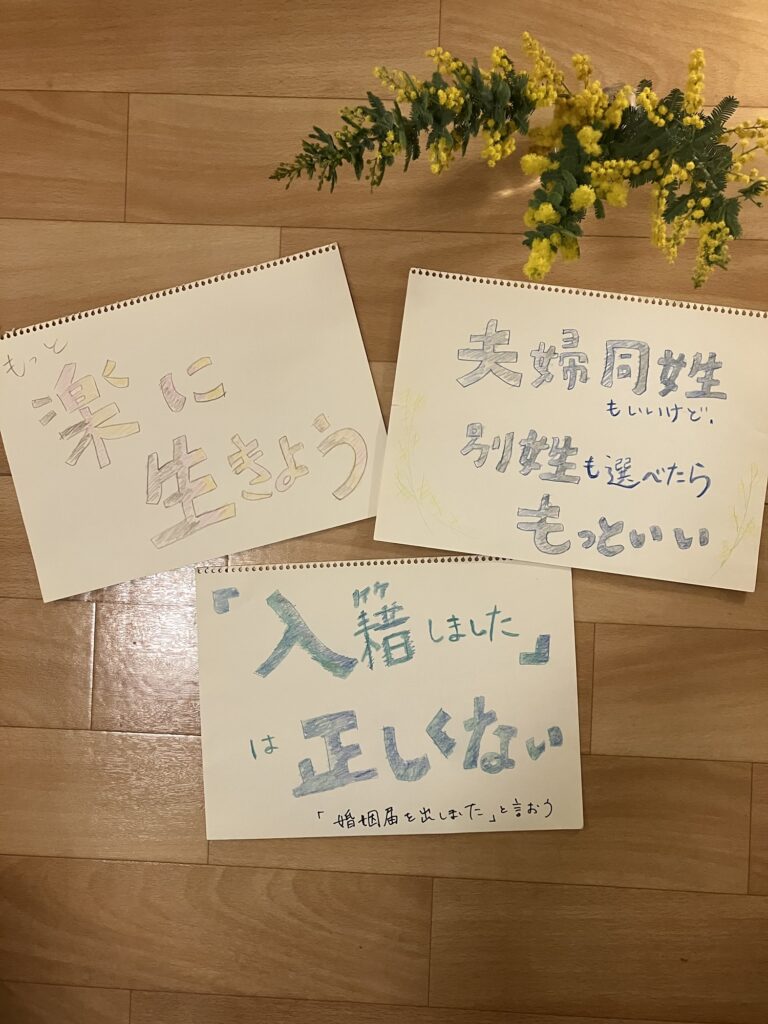 もっと
楽に
生きよう
夫婦同姓
もいいけど、
別姓も選べたら
もっといい
「入籍しました」
は正しくない
「婚姻届を出しました」と言おう